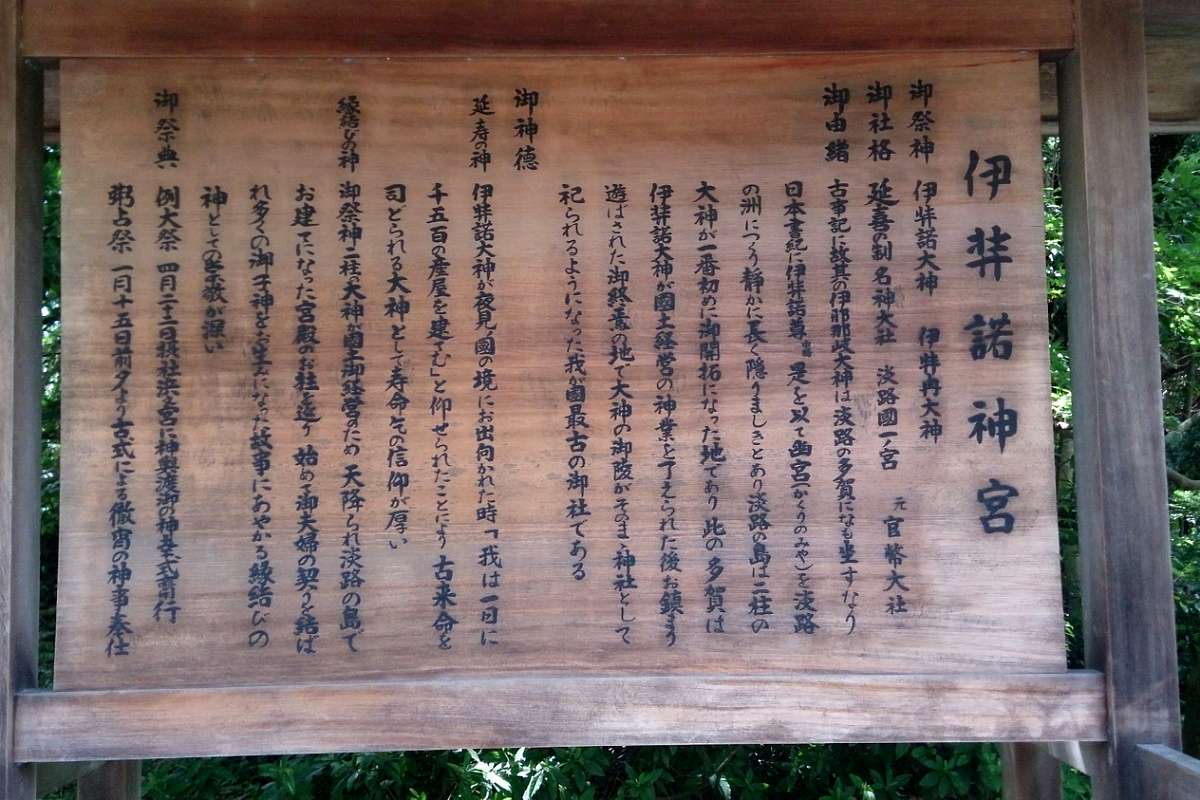 伊弉諾神宮
御祭神 伊弉諾大神 伊弉冉大神
御社格 延喜の制 名神大社 淡路國一ノ宮 元 官幣大社
御由緒 古事記に故其の伊耶那岐大神は淡路の多賀になも坐すなり
日本書紀に伊弉諾尊 是を以て幽宮(かくりのみや)を淡路
の洲につくり静かに長く隠りましきとあり淡路の島は二柱の
大神が一番初めに御開拓になった地であり此の多賀は
伊弉諾大神が國土経営の神業を了えられた後お鎮まり
遊ばされた御終焉の地で大神の御陵がそのまゝ神社として
祀られるようになった我が國最古の御社である
御神徳
延寿の神 伊弉諾大神が夜見の國の境にお出向かれた時「我は一日に
千五百の産屋を建てむ」と仰せられたことにより 古来命を
司どられる大神として寿命乞の信仰が厚い
縁結びの神 御祭神二柱の大神が國土御経営のため 天降られ淡路の島で
お建てになった宮殿のお柱を巡り 始めて御夫婦の契りを結ば
れ多くの御子神をお生みになった故事にあやかる縁結びの
神としての崇敬が深い
御祭典 例大祭 四月二十二日摂社浜宮に神輿渡御の神
粥占祭 一月十五日前夕より古式による徹宵の神事奉仕